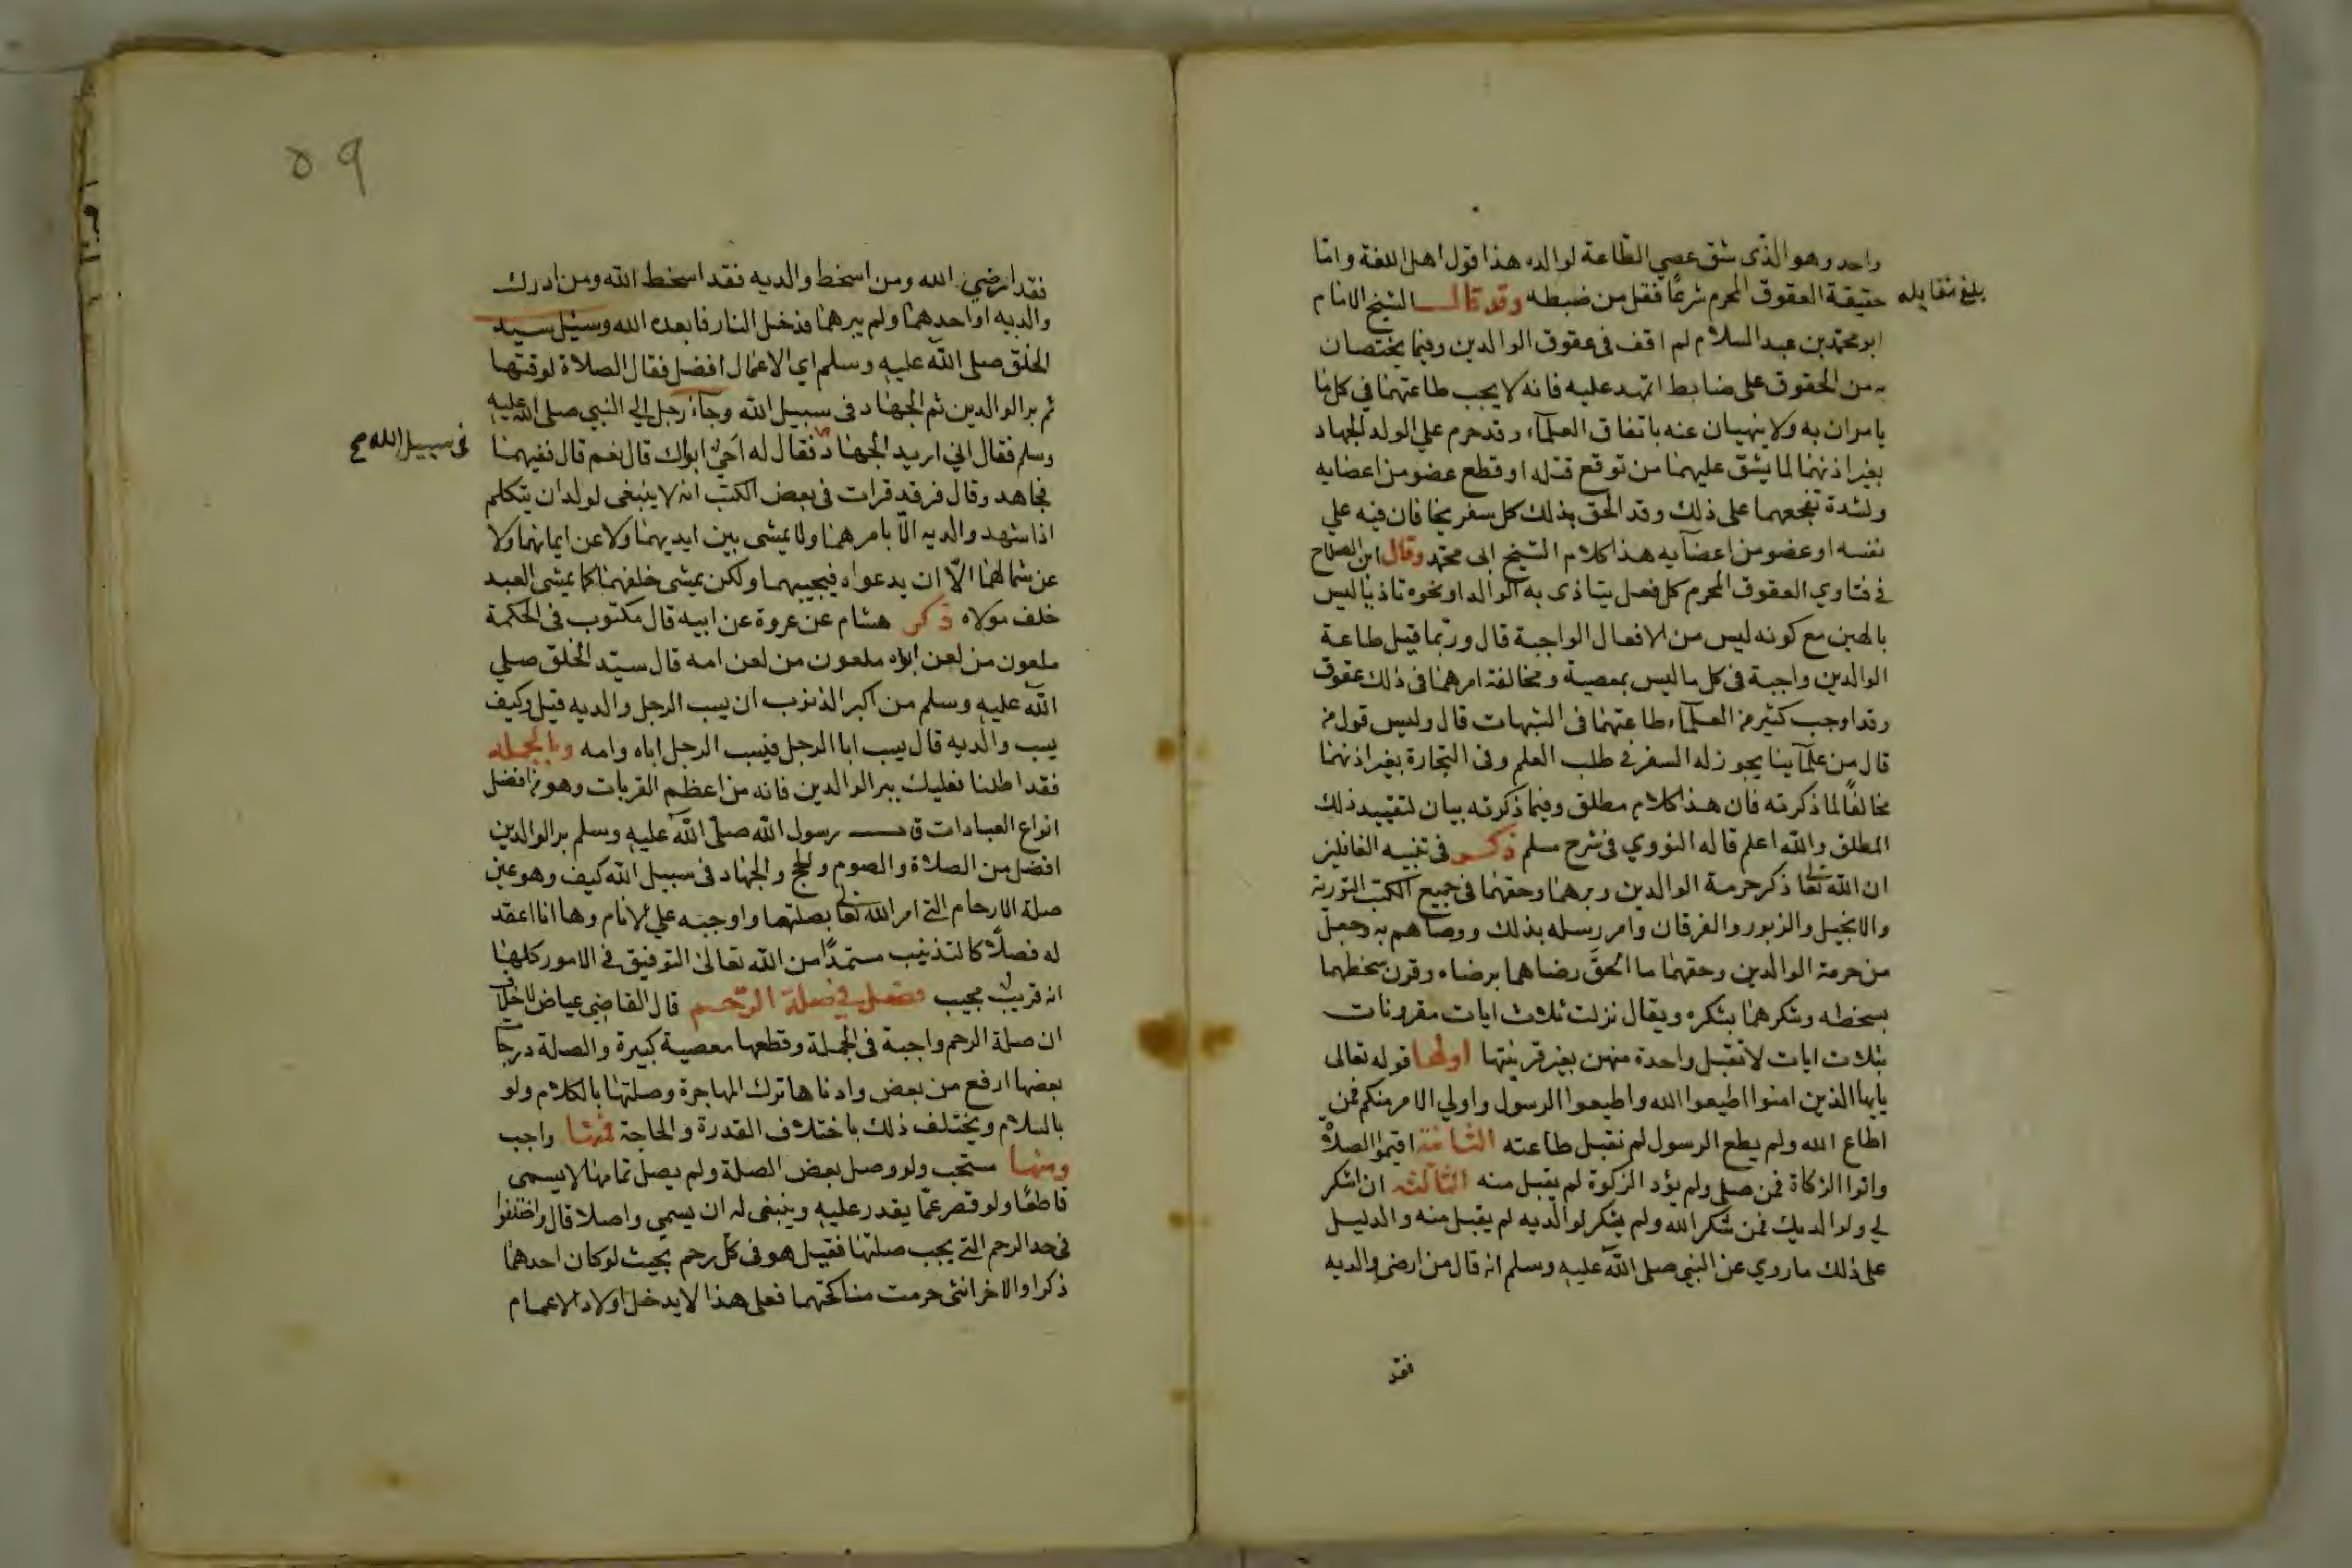 واحد وهو الذى شق عصي الطاعة لوالده هذا قول اهل اللغة واما
حقيقة العقوق المحرم شرعا فقل من ضبطه وقد قال الشيخ الامام
بلغ مقابله
ابو محمد بن عبد السلام لم اقف فى عقوق الوالدين وفيما يختصان
به من الحقوق على ضابط اعتمد عليه فانه لا يجب طاعتهما في كل ما
يامران به ولا ينهيان عنه باتفاق العلمآء وقد حرم علي الولد الجهاد
بغير اذنهما لما يشق عليهما من توقع قتله او قطع عضو من اعضايه
ولشدة تفجعهما على ذلك وقد الحق بذلك كل سفر يخافان فيه علي
نفسه او عضو من اعضآيه هذا كلام الشيخ ابى محمد وقال ابن الصلاح
في فتاوي العقوق المحرم كل فعل يتاذى به الوالد او نحوه تاذيا ليس
بالهين مع كونه ليس من الافعال الواجبة قال وربما قيل طاعة
الوالدين واجبة فى كل ما ليس بمعصية ومخالفة امرهما فى ذلك عقوق
وقد اوجب كثير من العلمآء طاعتهما فى الشبهات قال وليس قول من
قال من علمآينا يجوز له السفر في طلب العلم وفى التجارة بغير اذنهما
مخالفا لما ذكرته فان هذا كلام مطلق وفيما ذكرته بيان لتقييد ذلك
المطلق والله اعلم قاله النووي فى شرح مسلم ذكر فى تنبيه الغافلين
ان الله تعالى ذكر حرمة الوالدين وبرهما وحقهما فى جميع الكتب التورية
والانجيل والزبور والفرقان وامر رسله بذلك ووصاهم به وجعل
من حرمة الوالدين وحقهما ما الحق رضاهما برضاه وقرن سخطهما
بسخطه وشكرهما بشكره ويقال نزلت ثلاث ايات مقرونات
بثلاث ايات لا تقبل واحدة منهن بغير قرينتها اولها قوله تعالى
يايها الذين امنوا اطيعوا الله واطيعوا الرسول واولي الامر منكم فمن
اطاع الله ولم يطع الرسول لم تقبل طاعته الثانية اقيموا الصلاة
واتوا الزكاة فمن صلى ولم يؤد الزكوة لم يقبل منه الثالثه ان اشكر
لي ولوالديك فمن شكر الله ولم يشكر لوالديه لم يقبل منه والدليل
على ذلك ما روي عن النبي صلى الله عليه وسلم انه قال من ارضى والديه
فقد
٥٩
فقد ارضي الله ومن اسخط والديه فقد اسخط الله ومن ادرك
والديه او احدهما ولم يبرهما فدخل النار فابعده الله وسئل سيد
الخلق صلى الله عليه وسلم اي الاعمال افضل فقال الصلاة لوقتها
ثم بر الوالدين ثم الجهاد فى سبيل الله وجآء رجل الي النبي صلى الله عليه
وسلم فقال اني اريد الجهاد فقال له احيّ ابواك قال نعم قال ففيهما
فى سبيل الله صح
فجاهد وقال فرقد قرات فى بعض الكتب انه لا ينبغى لولد ان يتكلم
اذا شهد والديه الّا بامرهما ولا يمشى بين ايديهما ولا عن ايمانهما ولا
عن شمالهما الّا ان يدعواه فيجيبهما ولكن يمشى خلفهما كما يمشى العبد
خلف مولاه ذكر هشام عن عروة عن ابيه قال مكتوب فى الحكمة
ملعون من لعن اباه ملعون من لعن امه قال سيّد الخلق صلي
الله عليه وسلم من اكبر الذنوب ان يسب الرجل والديه قيل وكيف
يسب والديه قال يسب ابا الرجل فيسب الرجل اباه وامه وبالجمله
فقد اطلنا فعليك ببر الوالدين فانه من اعظم القربات وهو من افضل
انواع العبادات قال رسول الله صلّى الله عليه وسلم بر الوالدين
افضل من الصلاة والصوم والحج والجهاد فى سبيل الله كيف وهو عين
صلة الارحام التي امر الله تعالى بصلتها واوجبه علي الانام وها انا اعقد
له فصلًا كالتذنيب مستمدًا من الله تعالى التوفيق في الامور كلها
انه قريب مجيب فصل في صلة الرحم قال القاضي عياض لا خلاف
ان صلة الرحم واجبة فى الجملة وقطعها معصية كبيرة والصلة درجات
بعضها ارفع من بعض وادناها ترك المهاجرة وصلتها بالكلام ولو
بالسلام ويختلف ذلك باختلاف القدرة والحاجة فمنها واجب
ومنها مستحب ولو وصل بعض الصلة ولم يصل تمامها لا يسمى
قاطعا ولو قصر عمّا يقدر عليه وينبغى له ان يسمي واصلا قال واختلفوا
فى حد الرحم التي يجب صلتها فقيل هو فى كل رحم بحيث لو كان احدهما
ذكرا والاخر انثى حرمت مناكحتهما فعلى هذا لا يدخل اولاد الاعمام